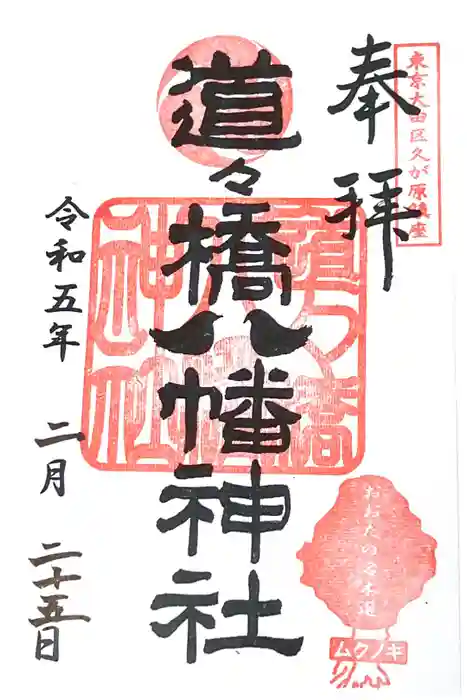 東京大田区久が原鎮座
奉拝
道々橋八幡神社
道々橋八幡神社
令和五年 二月 二十五日
おおたの名木選
ムクノキ